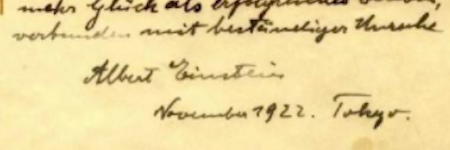 mehr Glück als erfolgreiches
verbunden mit beständiger Unruhe
Albert Einstein
November 1922. Tokyo.